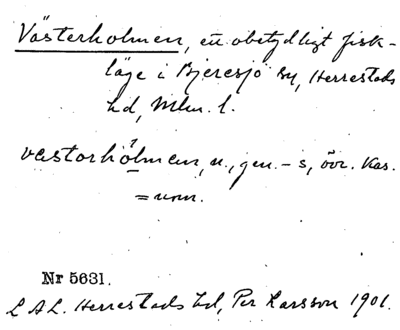 Västerholmen, ett obetydligt fisk-
läge i Bjeresjö sn, Herrestads
hd, Mlm. l.
västorhòlmen, n., gen. -s, övr. kas.
= nom.
Nr 5631.
L A L. Herrestads hd, Per Larsson 1901.